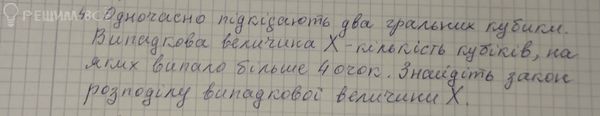 РЕШИМ ВС
4. Одночасно підкідають два гральних кубики.
Випадкова величина X - кількість кубіків, на
яких випало більше 4 очок. Знайдіть закон
розподілу випадкової величини X.